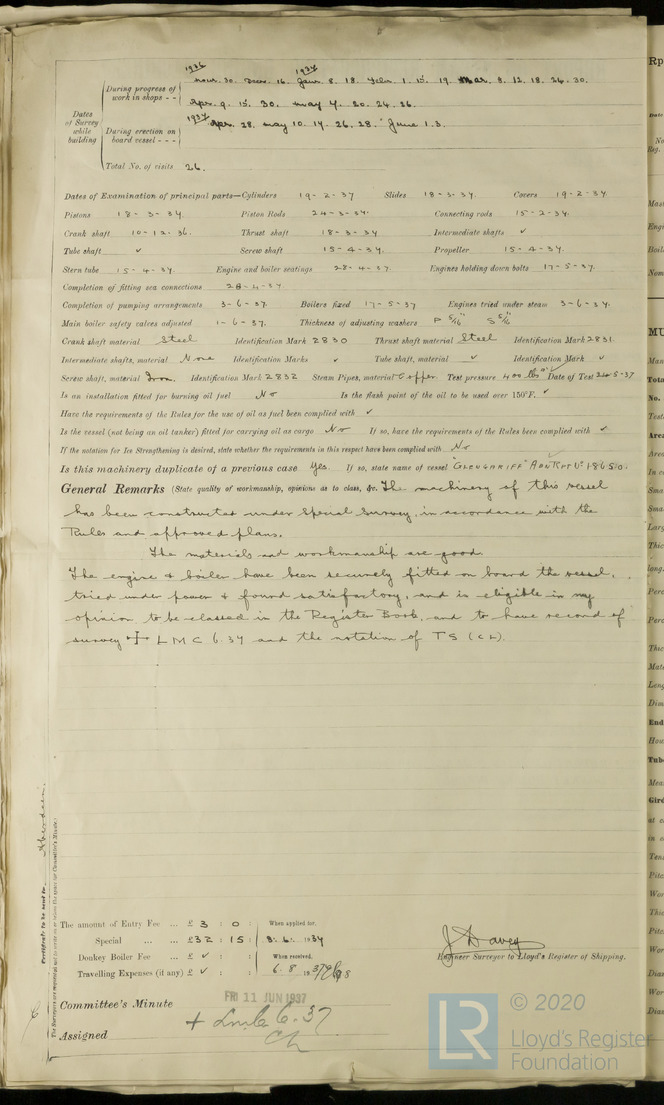 1936 1937
During progress of work in shops - - Novr. 30. Decr. 16. Janr. 8. 18. Febr. 1. 15. 19. Mar. 8. 12. 18. 26. 30.
Apr. 9. 15. 30. May 4. 20. 24. 26.
Dates of Survey while building
During erection on board vessel - - - 1937 Apr. 28. May 10. 14. 26. 28. June 1. 3.
Total No. of visits 26.
Dates of Examination of principal parts—Cylinders 19-2-37 Slides 18-3-37. Covers 19-2-37.
Pistons 18-3-37. Piston Rods 24-3-37. Connecting rods 15-2-37.
Crank shaft 10-12-36. Thrust shaft 18-3-37 Intermediate shafts ✓
Tube shaft ✓ Screw shaft 15-4-37. Propeller 15-4-37.
Stern tube 15-4-37. Engine and boiler seatings 28-4-37. Engines holding down bolts 17-5-37.
Completion of fitting sea connections 28-4-37
Completion of pumping arrangements 3-6-37. Boilers fixed 17-5-37 Engines tried under steam 3-6-37.
Main boiler safety valves adjusted 1-6-37. Thickness of adjusting washers P 5/16" S 5/16
Crank shaft material Steel Identification Mark 2830 Thrust shaft material Steel Identification Mark 2831.
Intermediate shafts, material None Identification Marks ✓ Tube shaft, material ✓ Identification Mark ✓
Screw shaft, material Iron. Identification Mark 2832 Steam Pipes, material Copper. Test pressure 400 lbs □" Date of Test 24-5-37
Is an installation fitted for burning oil fuel No Is the flash point of the oil to be used over 150°F. ✓
Have the requirements of the Rules for the use of oil as fuel been complied with ✓
Is the vessel (not being an oil tanker) fitted for carrying oil as cargo No If so, have the requirements of the Rules been complied with ✓
If the notation for Ice Strengthening is desired, state whether the requirements in this respect have been complied with No
Is this machinery duplicate of a previous case Yes. If so, state name of vessel "GLENGARIFF" Abn Rpt No 18650.
General Remarks (State quality of workmanship, opinions as to class, &c. The machinery of this vessel
has been constructed under Special Survey, in accordance with the
Rules and approved plans.
The materials and workmanship are good.
The engine & boiler have been securely fitted on board the vessel,
tried under power & found satisfactory, and is eligible in my
opinion to be classed in the Register Book, and to have record of
survey ✠ L M C 6.37 and the notation of T S (CL).
Aberdeen.
Certificate to be sent to
The amount of Entry Fee ... £ 3 : 0 : When applied for,
Special ... ... £32 : 15 : 8.6. 1937
Donkey Boiler Fee ... £ ✓ : : When received,
Travelling Expenses (if any) £ ✓ : : 6.8 1937
J Davey
Engineer Surveyor to Lloyd's Register of Shipping.
Committee's Minute FRI 11 JUN 1937
Assigned + Lmc 6.37
CL
© 2020
LR Lloyd's Register
Foundation